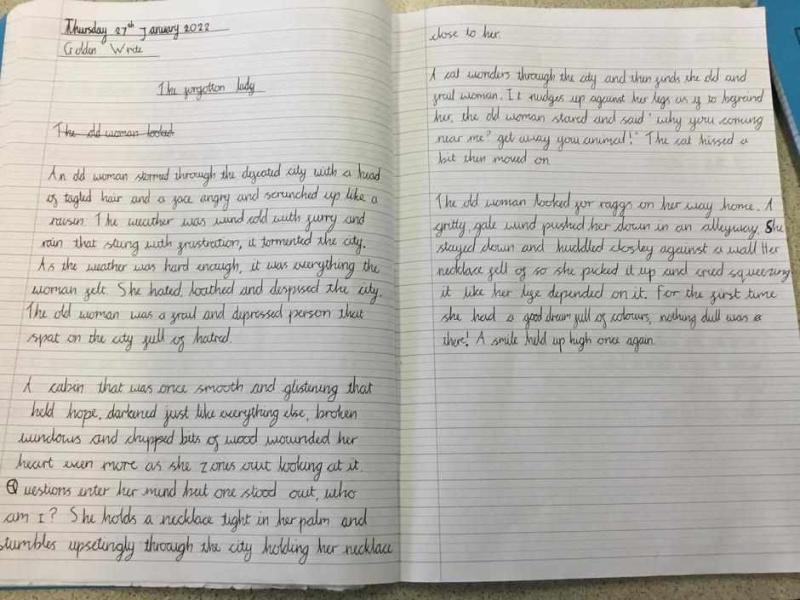 Thursday 27th January 2022
Golden Write
The forgotton lady
The old woman looked
An old woman stormed through the defeated city with a head
of tagled hair and a face angry and scrunched up like a
raisen. The weather was wind cold with furry and
rain that stung with frustration, it tormented the city.
As the weather was hard enough, it was everything the
woman felt. She hated, loathed and despised the city.
The old woman was a frail and depressed person that
spat on the city full of hatred.
A cabin that was once smooth and glistening that
held hope, darkened just like everything else, broken
windows and chipped bits of wood wounded her
heart even more as she zones out looking at it.
Questions enter her mind but one stood out, who
am I? She holds a necklace tight in her palm and
stumbles upsetingly through the city holding her necklace
close to her.
A cat wonders through the city and then finds the old and
frail woman. It nudges up against her legs as if to befriend
her, the old woman stared and said "why you coming
near me? get away you animal!" The cat hissed a
bit then moved on.
The old woman looked for raggs on her way home. A
gritty, gale wind pushed her down in an alleyway. She
stayed down and huddled closley against a wall. Her
necklace fell of so she picked it up and cried squeezing
it like her life depended on it. For the first time
she had a good dream full of colours, nothing dull was
there! A smile held up high once again.